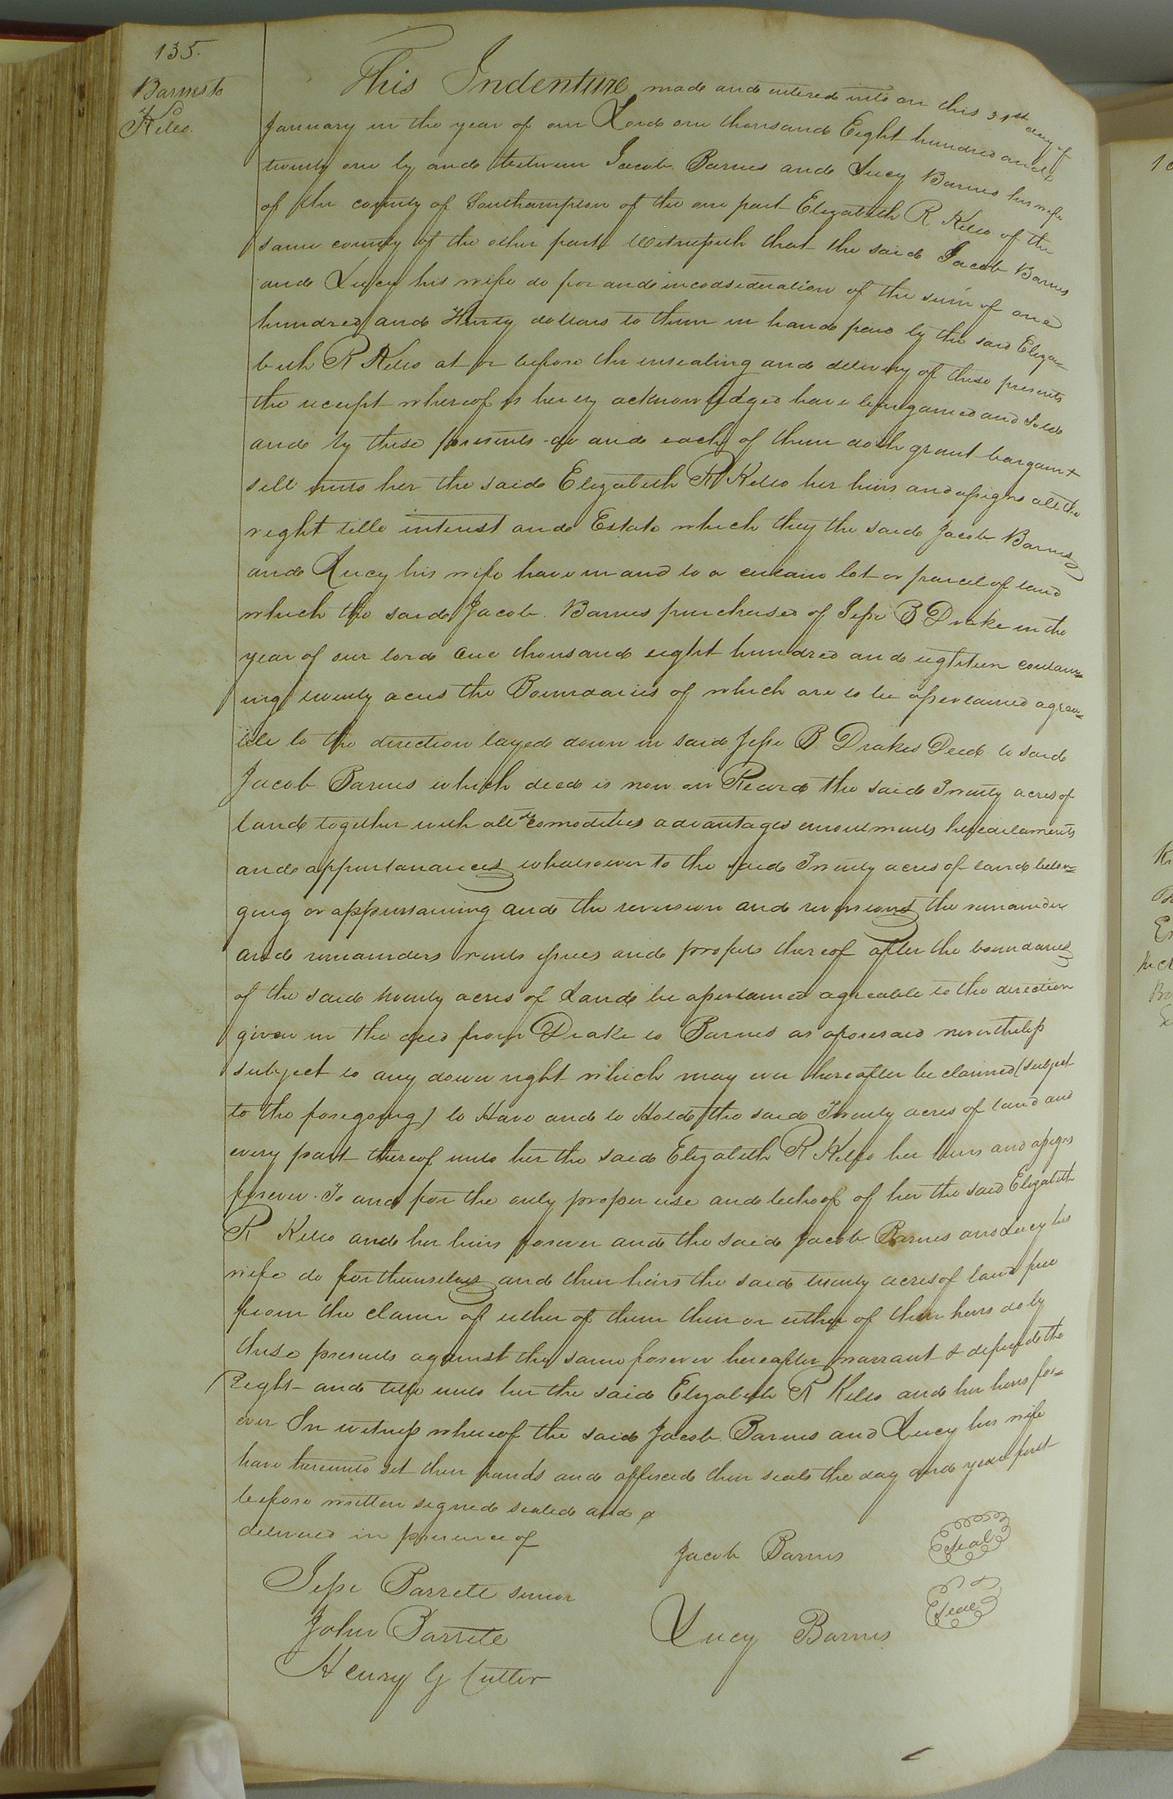 135.
Barnes to
Kello.
This Indenture made and entered into on this 31st day of
January in the year of our Lord one thousand Eight hundred and
twenty one by and between Jacob Barnes and Lucy Barnes his wife
of the county of Southampton of the one part Elizabeth R Kello of the
same county of the other part Witnesseth that the said Jacob Barnes
and Lucy his wife do for and in consideration of the sum of one
hundred and thirty dollars to them in hand paid by the said Eliza-
beth R Kello at or before the ensealing and delivery of these presents
the receipt whereof is hereby acknowledged have bargained and sold
and by these presents do and each of them doth grant bargain &
sell unto her the said Elizabeth R Kello her heirs and assigns all the
right title interest and Estate which they the said Jacob Barnes
and Lucy his wife have in and to a certain lot or parcel of land
which the said Jacob Barnes purchased of Jesse B Drake in the
year of our lord One thousand eight hundred and eighteen contain-
ing twenty acres the Boundaries of which are to be assertained agrea-
ble to the direction layed down in said Jesse B Drakes Deed to said
Jacob Barnes which deed is now on Record the said Twenty acres of
land together with all the comodities advantages emoluments hereditaments
and appurtanances whatsoever to the said Twenty acres of land belon-
ging or appurtaining and the reversion and reversions the remainder
and remainders rents issues and profits thereof after the boundaries
of the said twenty acres of Land be assertained agreable to the direction
given in the deed from Drake to Barnes as aforesaid nevertheless
subject to any dower right which may ever hereafter be claimed (subject
to the foregoing) to Have and to Hold the said Twenty acres of land and
every part thereof unto her the said Elizabeth R Kello her heirs and assigns
forever. To and for the only proper use and behoof of her the said Elizabeth
R Kello and her heirs forever and the said Jacob Barnes and Lucy his
wife do for themselves and their heirs the said twenty acres of land free
from the claim of either of them their or either of their heirs do by
these presents against the same forever hereafter warrant & defend the
Right and title unto her the said Elizabeth R Kello and her heirs for-
ever In witness whereof the said Jacob Barnes and Lucy his wife
have hereunto set their hands and affixed their seals the day and year first
before written signed sealed and
delivered in presence of
Jacob Barnes Seal
Jesse Barrett senior
John Barrett
Lucy Barnes Seal
Henry G Cutler